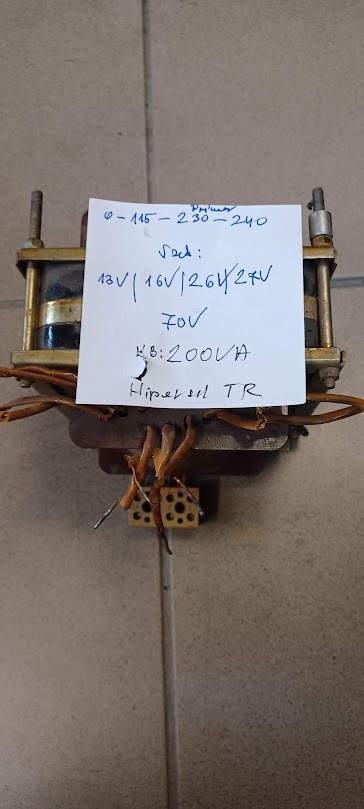 Primer
0-115-230-240
Sec:
13V/16V/26V/27V
70V
KB:200VA
Hipersil TR